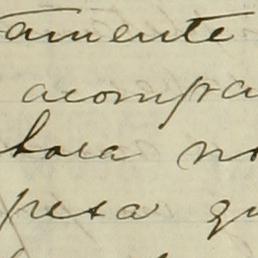 amente
acompa
hora no
pesa qu